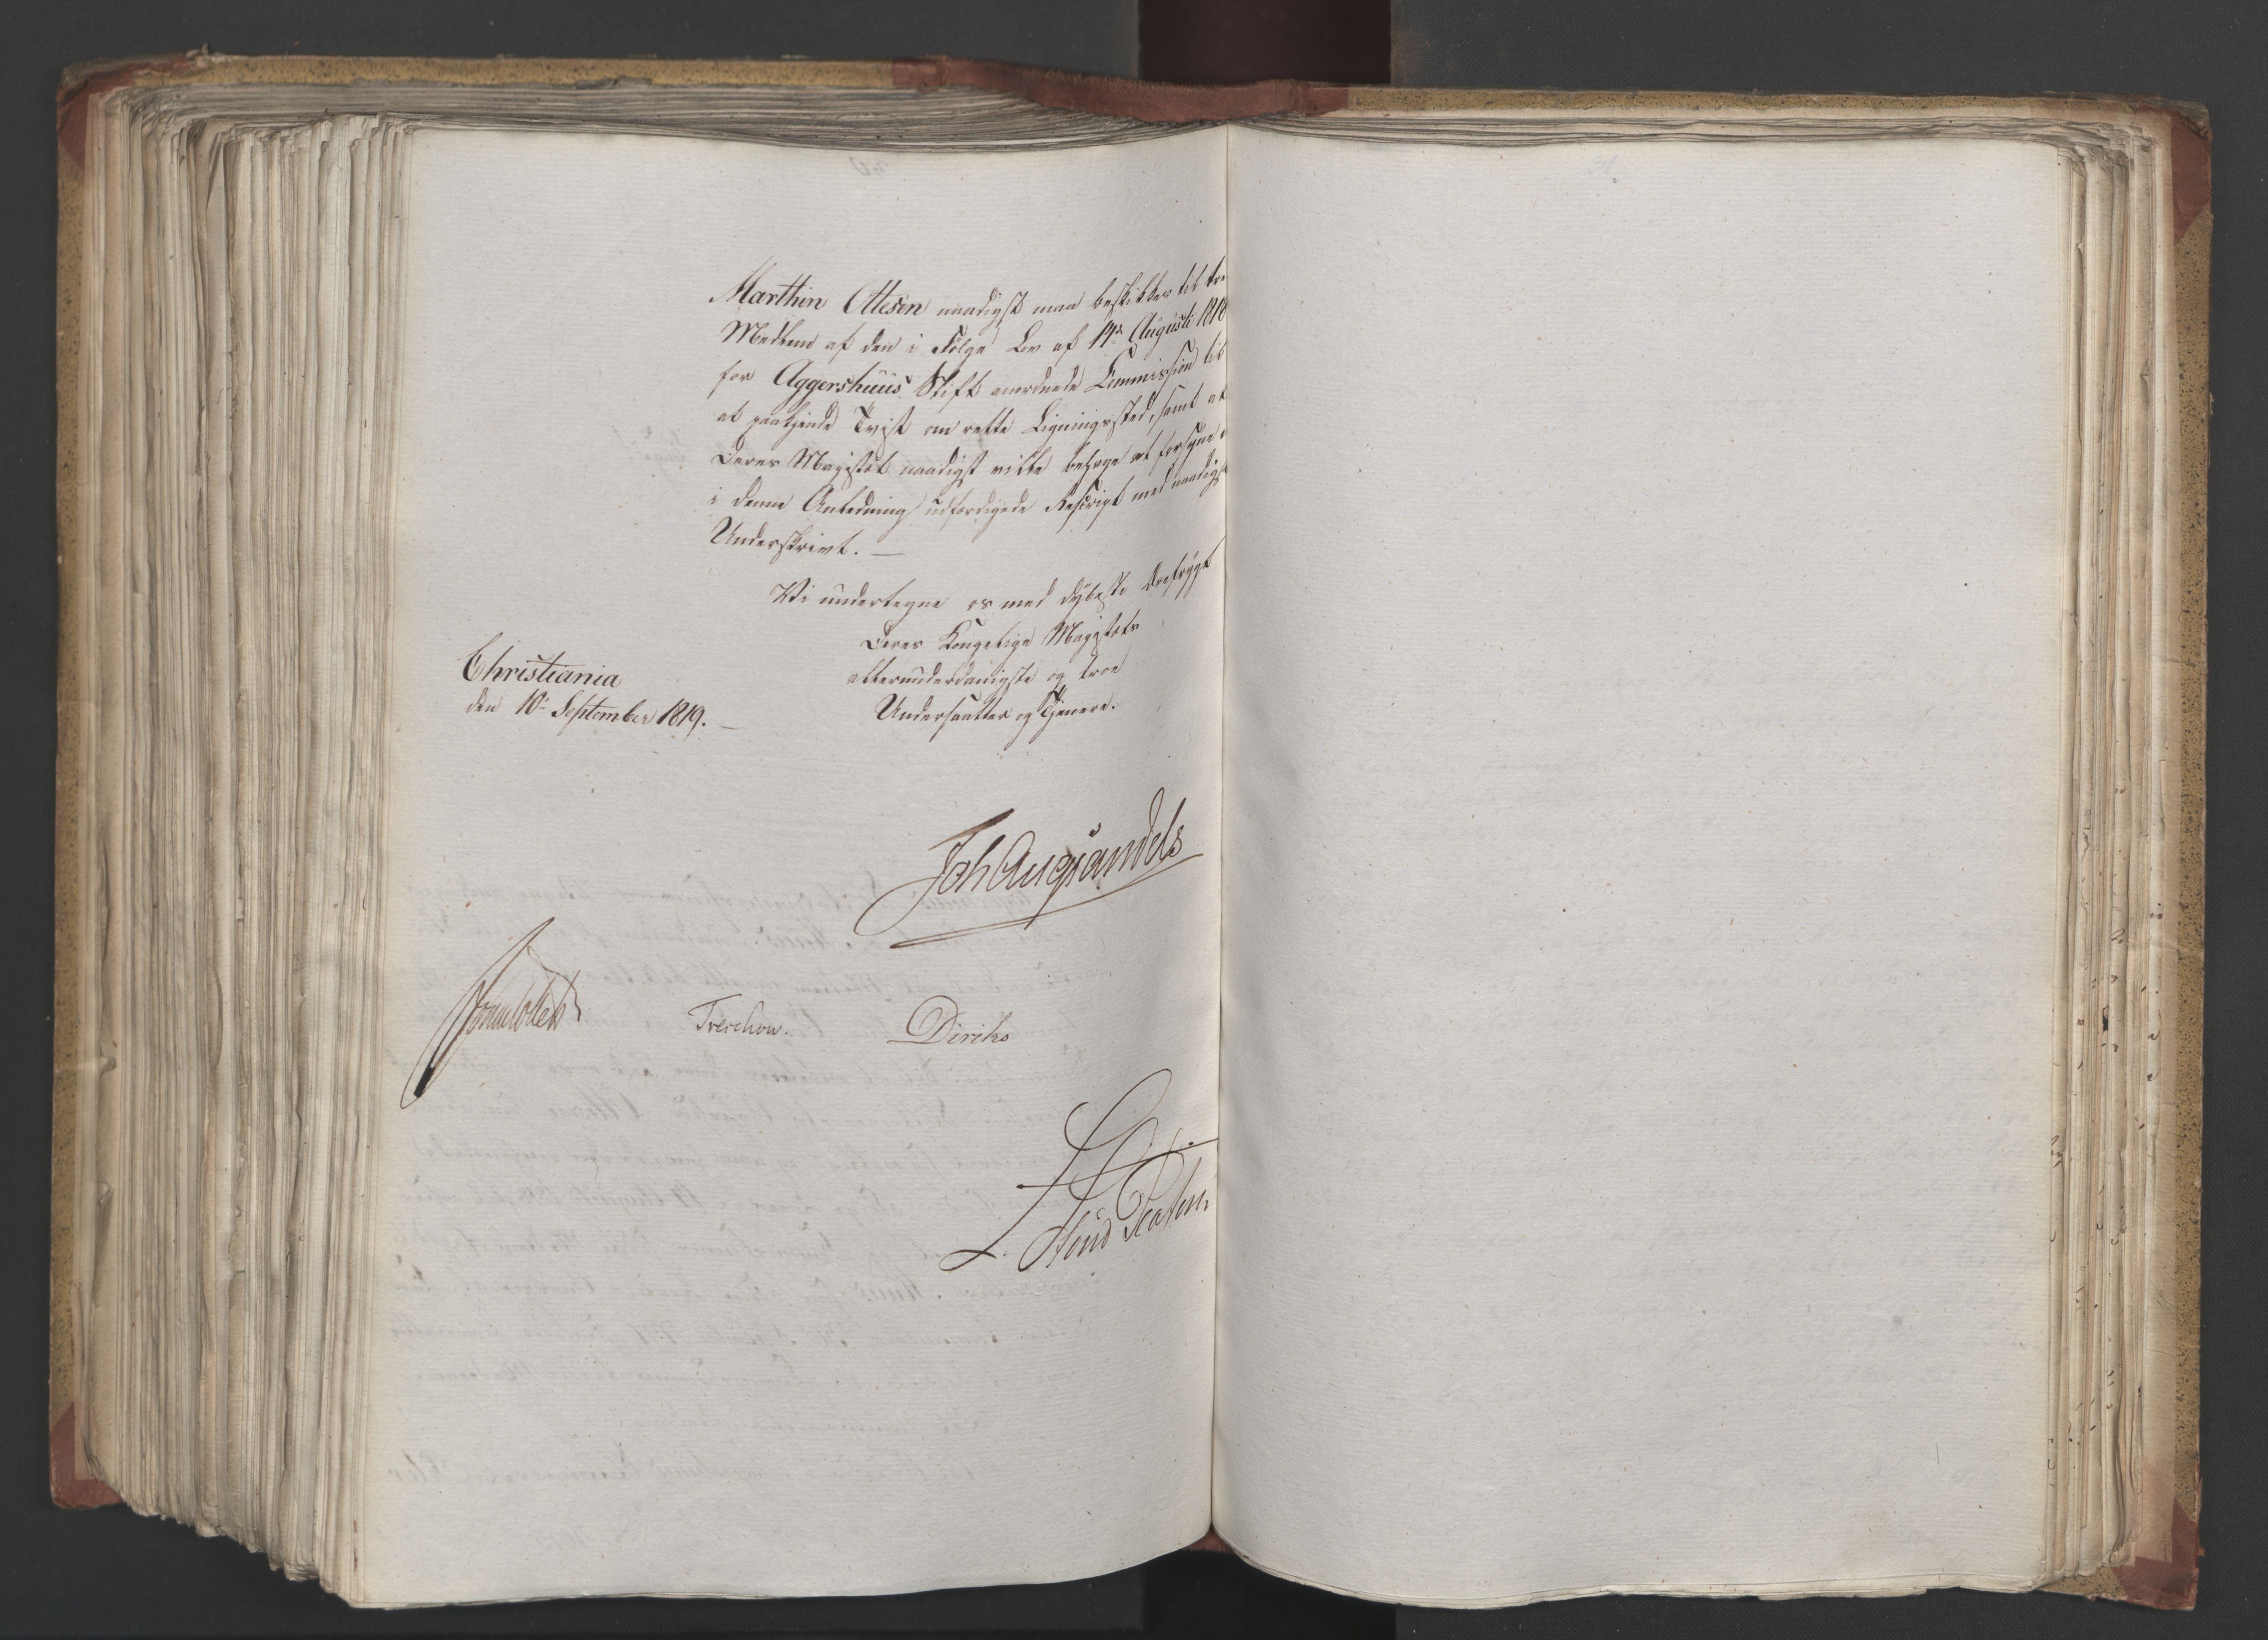 Marthin Ottesen naadigst maa beskikkes til tre
Medlem af den i Følge Lov af 14de Augusti 1818
for Aggershuus Stift anordnede Commission til
at paakjende Tvist om rette Ligningssted, samt at
Deres Majestæt naadigst vilde behage at forsyne
i denne Anledning udfærdigede Rescript med naadigst
Underskrivt. —
Vi undertegne os med dybeste Ærefrygt
Deres Kongelige Majestæts
allerunderdanigste og troe
Undersaatter og Tjenere.
Christiania
den 10de September 1819. —
Joh Aug Sandels
Sommerfeldt
Treschow.
Diriks